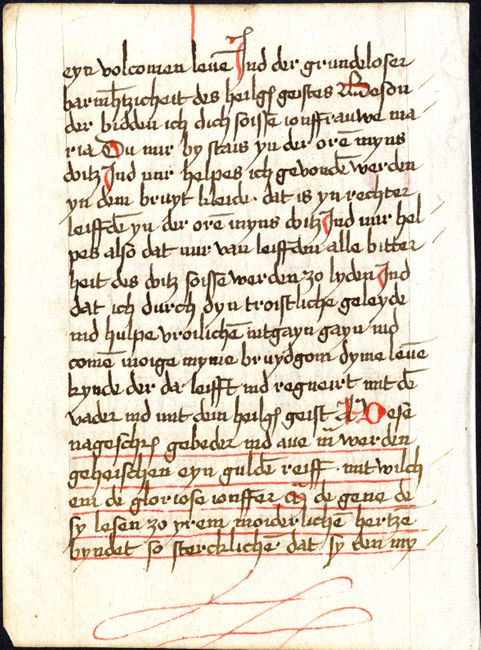 eyn volcomen leuē Ind der grundeloser
barmhtzicheit des heilgs geistes Beson
der bidden ich dich soisse ionffrauwe ma
ria Du mir by stais yn der orē myns
doitz Ind mir helpes ich gevondē werden
yn dem bruyt kleide· dat is yn rechter
leiffdē yn der orē myns doitz Ind mir hel
pes also dat mir van leiffden alle bitter
heit des doitz soisse werden zo lyden Ind
dat ich durch dyn troistliche geleyde
ind hulpe vroilichē intgayn gayn ind
comē moige myme bruydgom dyme leuē
kynde der da leifft ind regneirt mit dē
vader ind mit dem heilgs geist A Dese
nageschrs gebeder ind aue mā werden
geheischen eyn guldē reiff· mit wilch
em de gloriose ionffer de gene de
sy lesen zo yrem moiderlichē hertzē
byndet so stercklichē· dat sy den my